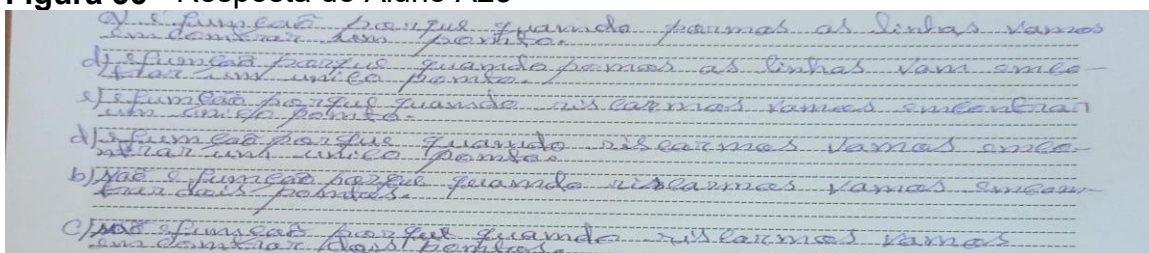 Figura 30 - Resposta do Aluno A20
a) é fumção porque quamdo pormos as linhas vamos
emcomtrar um pomto.
d) é fumção porque quamdo pomos as linhas vam emco-
ntrar um unico pomto.
e) é fumção porque quamdo riscarmos vamos emcontrar
um unico pomto.
d) é fumção porque quamdo riscarmos vamos emco-
ntrar um unico pomto.
b) não é fumção porque quamdo riscarmos vamos emcom-
trar dois pomtos.
c) não é fumção porque quamdo riscarmos vamos
emcomtrar dois pomtos.